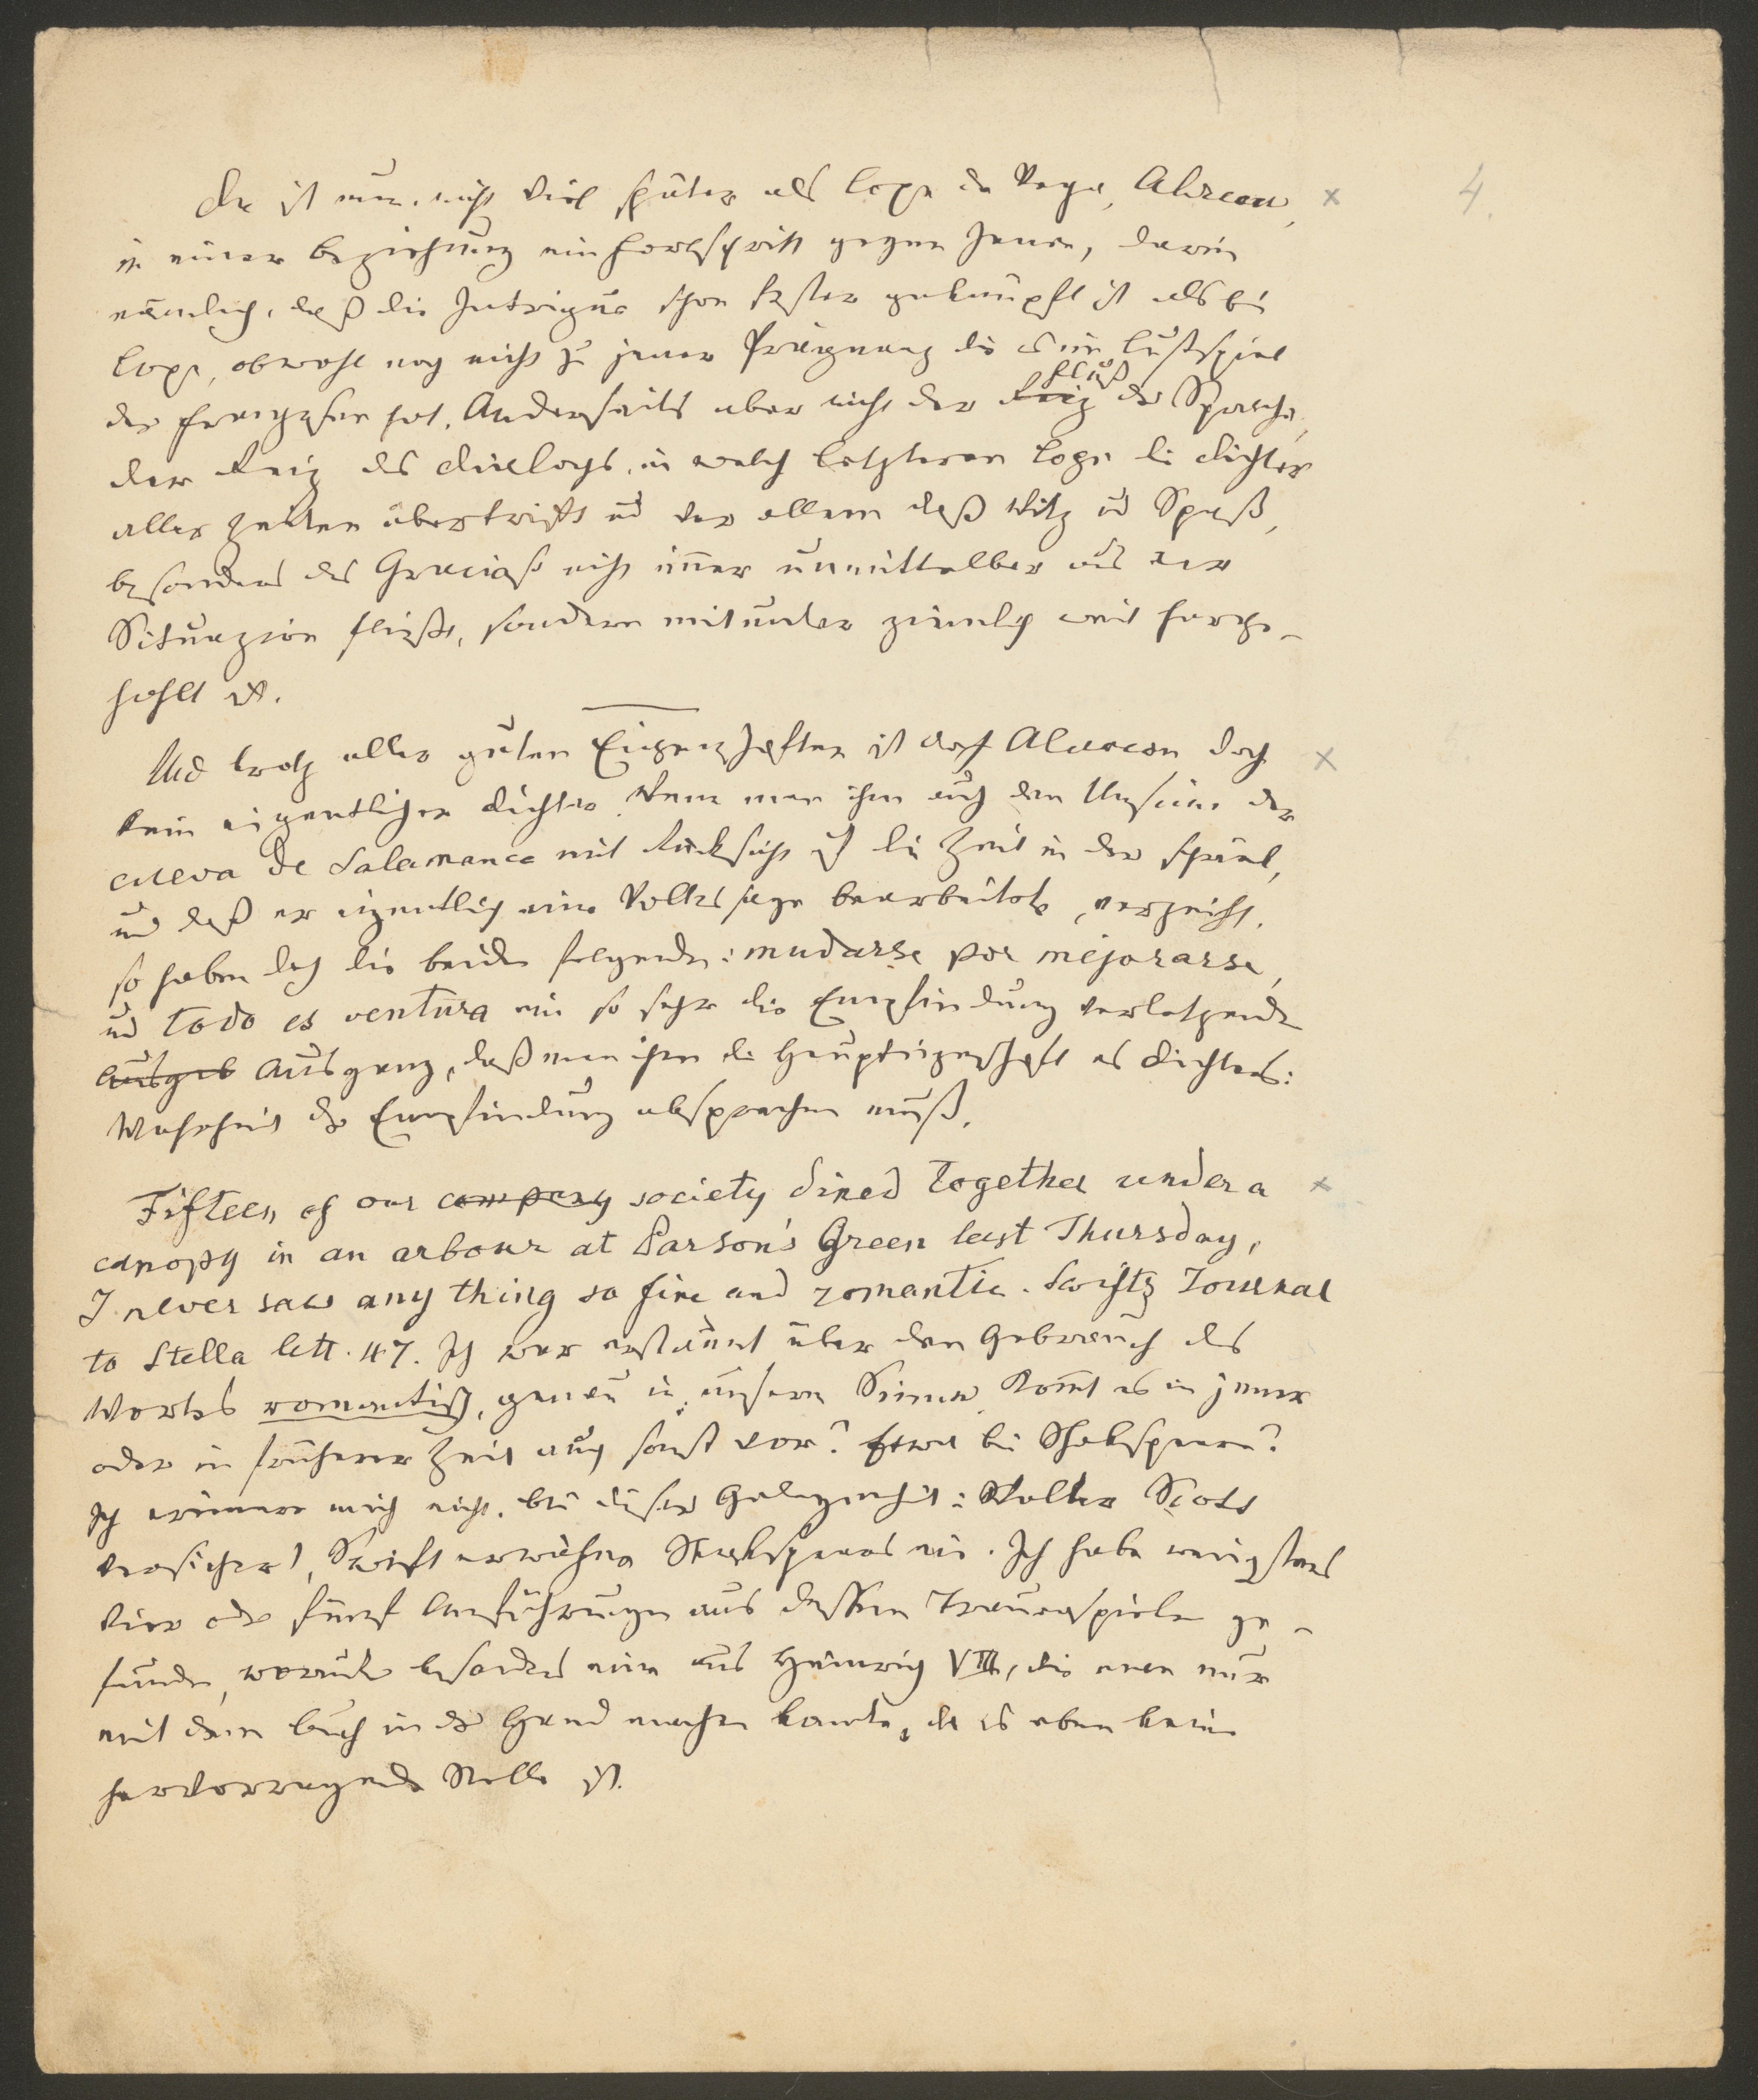 4.
Da ist nun, nicht viel später als Lope de Vega, Alarcon, x
in einer Beziehung ein Fortschritt gegen Jenen, darin
nämlich, daß die Intrigue schon fester geknüpft ist als bei
Lope, obwohl noch nicht zu jener Prägnanz die es im Lustspiel
der Franzosen hat. Anderseits aber nicht der Reiz Fluß der Sprache,
der Reiz des Dialogs, in welch letzterem Lope die Dichter
aller Zeiten übertrifft und vor allem daß Witz und Spaß,
besonders des Grazioso nicht immer unmittelbar aus der
Situazion fließt, sondern mitunter ziemlich weit herge-
hohlt ist.
Und trotz aller guten Eigenschaften ist doch Alarcon doch x
kein eigentlicher Dichter. Wenn man ihm auch den Unsinn der
cueva de Salamanca mit Rücksicht auf die Zeit in der spielt,
und daß er eigentlich eine Volkssage bearbeitete, verzeiht,
so haben doch die beiden folgenden: mudarse por mejorarse,
und todo es ventura ein so sehr die Empfindung verletzenden
Ausgab Ausgang, daß man ihm die Haupteigenschaft des Dichters:
Wahrheit der Empfindung absprechen muß.
Fifteen of our company society dined together under a x
canopy in an arbour at Parson's Green last Thursday,
I never saw any thing so fine and romantic. Swifts Journal
to Stella lett. 47. Ich war erstaunt über den Gebrauch des
Wortes romantisch, genau in unserm Sinne. Kommt es in jener
oder in früherer Zeit auch sonst vor? Etwa bei Shakspeare?
Ich erinnere mich nicht. Bei dieser Gelegenheit: Walter Scott
versichert, Swift erwähne Shakspeares nie. Ich habe wenigstens
vier oder fünf Anführungen aus dessen Trauerspielen ge-
funden, worunter besonders eine aus Heinrich VIII, die man nur
mit dem Buch in der Hand machen konnte, da es eben keine
hervorragende Stelle ist.